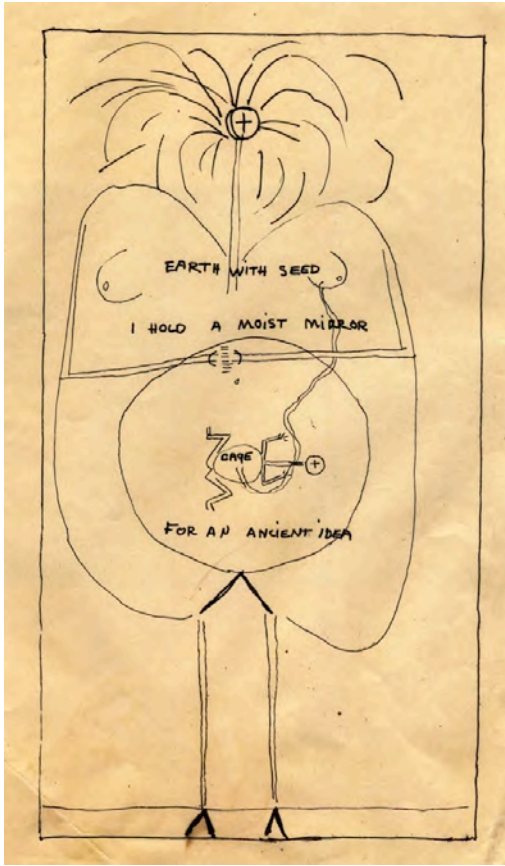 EARTH WITH SEED
I HOLD A MOIST MIRROR
CAGE
FOR AN ANCIENT IDEA